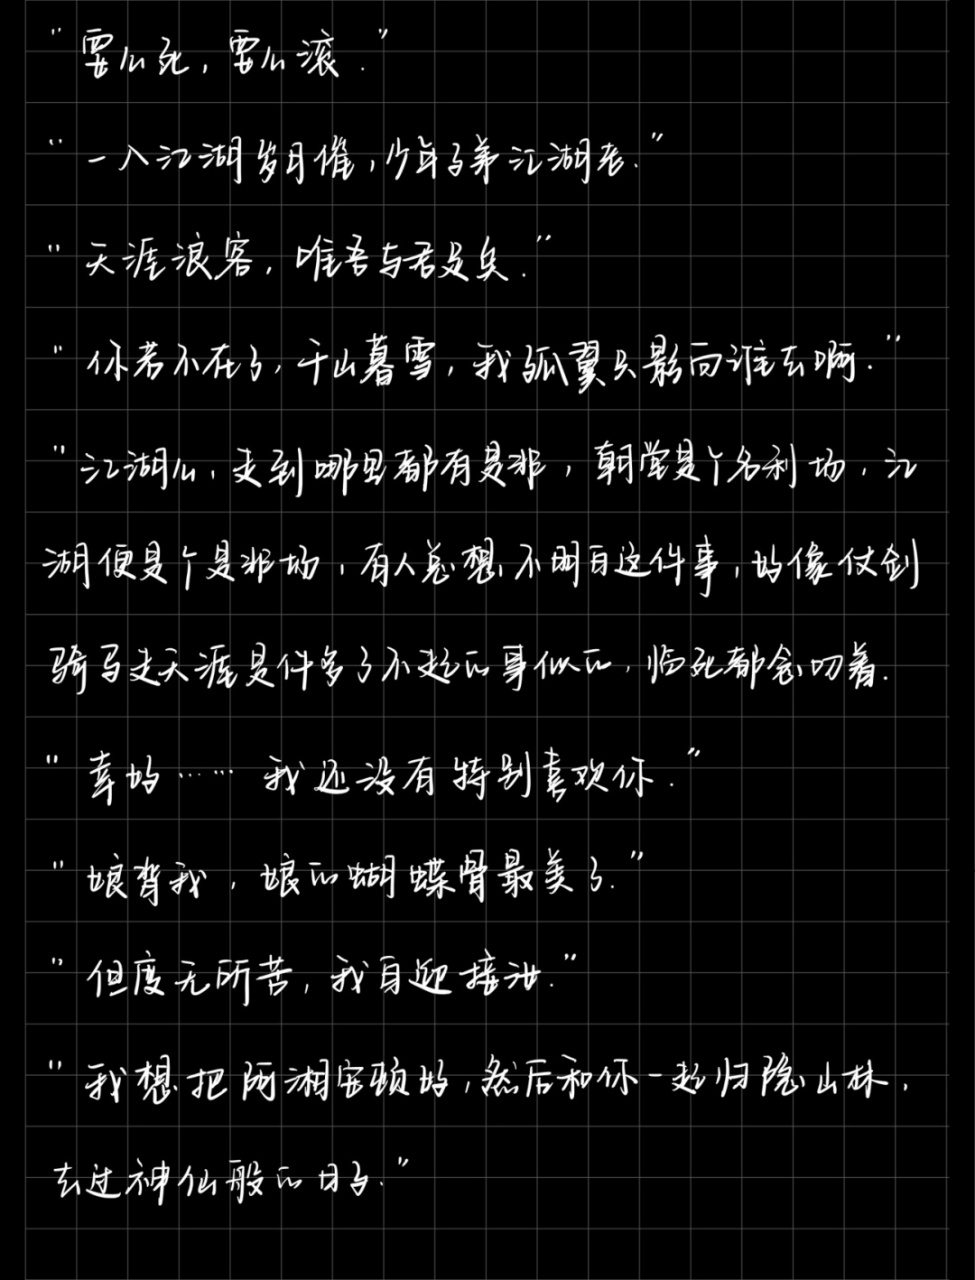 “要么死，要么滚.”
“一入江湖岁月催，少年子弟江湖老.”
“天涯浪客，唯吾与君足矣.”
“你若不在了，千山暮雪，我孤翼只影向谁去啊.”
“江湖么，走到哪里都有是非，朝堂是个名利场，江
湖便是个是非场，有人总想不明白这件事，好像仗剑
骑马走天涯是件多了不起的事似的，临死都念叨着.
“幸好…… 我还没有特别喜欢你.”
“娘背我，娘的蝴蝶骨最美了.”
“但度无所苦，我自迎接汝.”
“我想把阿湘安顿好，然后和你一起归隐山林，
去过神仙般的日子.”